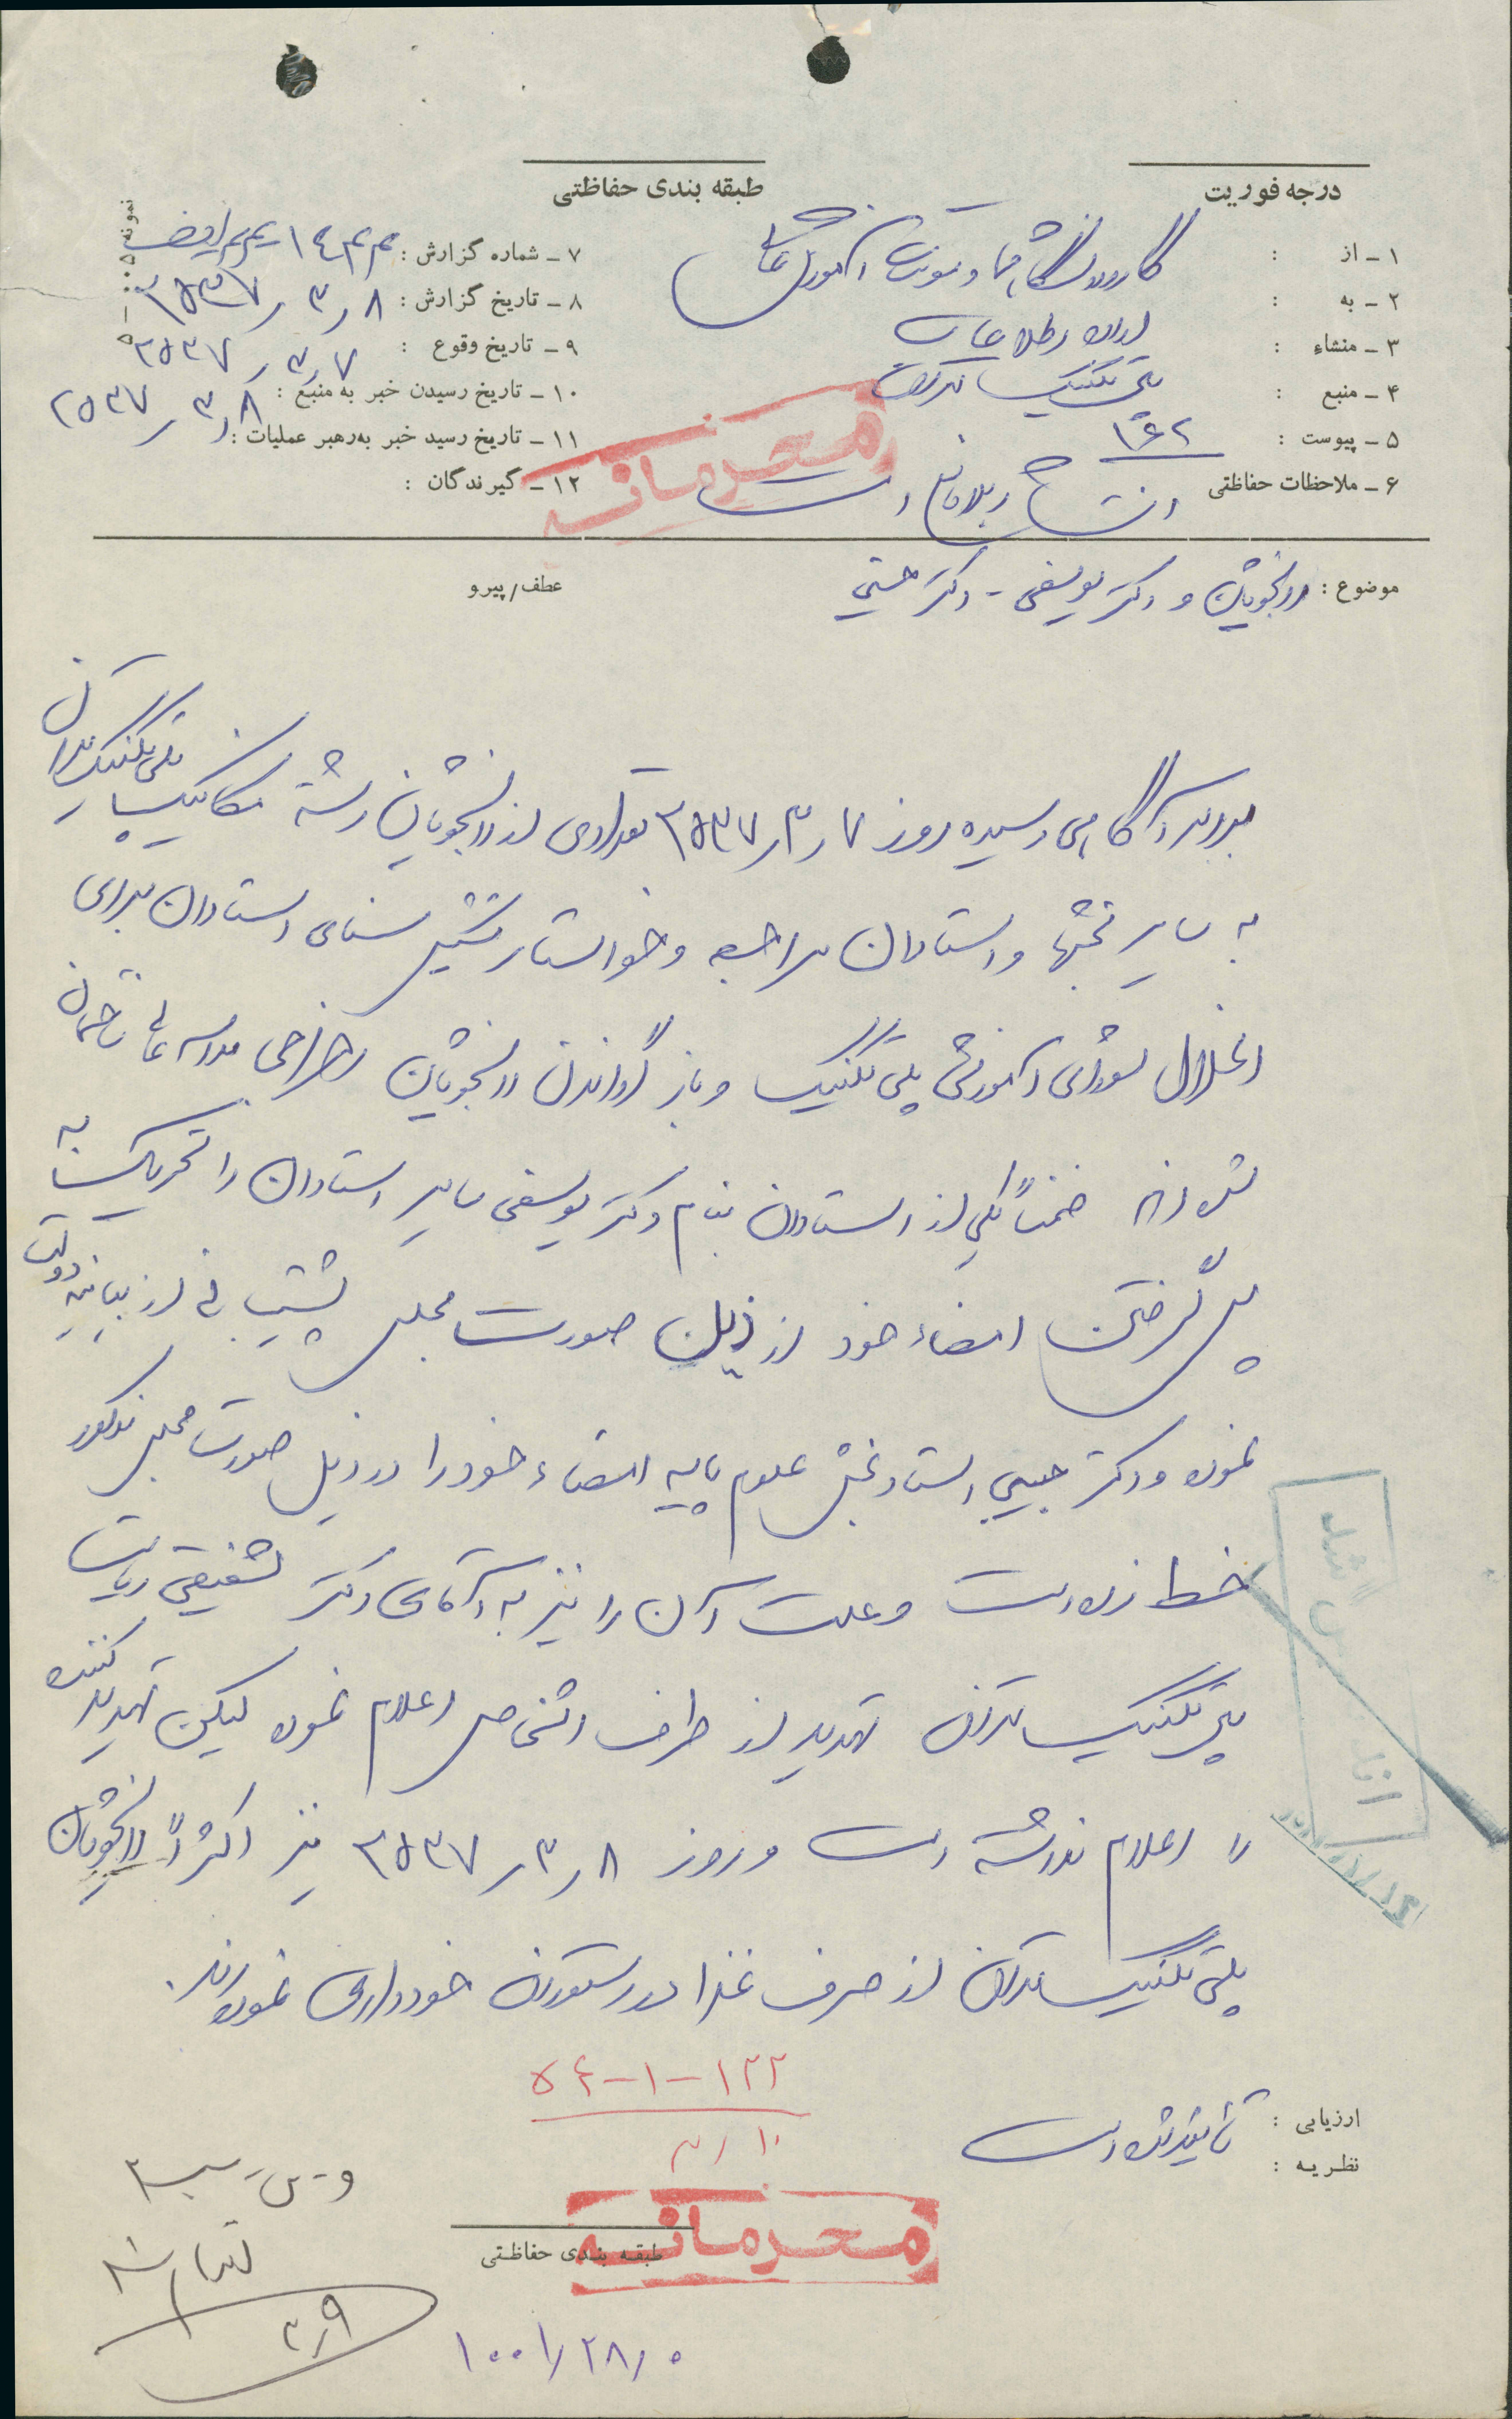 درجه فوریت
طبقه بندی حفاظتی
۱ ـ از : گارد دانشگاهها و موسسات آموزش عالی
۲ ـ به : اداره اطلاعات
۳ ـ منشاء : پلی تکنیک تهران
۴ ـ منبع : ۱۶۲
۵ ـ پیوست :
۶ ـ ملاحظات حفاظتی
۷ ـ شماره گزارش :
۸ ـ تاریخ گزارش : ۲۵۳۷٫۳٫۸
۹ ـ تاریخ وقوع : ۲۵۳۷٫۳٫۷
۱۰ ـ تاریخ رسیدن خبر به منبع : ۲۵۳۷٫۳٫۸
۱۱ ـ تاریخ رسید خبر به رهبر عملیات :
۱۲ ـ گیرندگان :
محرمانه
موضوع : دانشجویان و دکتر یوسفی - دکتر حبیبی
عطف / پیرو
برابر آگاهی رسیده روز ۲۵۳۷٫۳٫۷ تعدادی از دانشجویان رشته مکانیک پلی تکنیک تهران
به سایر بخشها و استادان مراجعه و خواستار تشکیل سنای استادان برای
انحلال شورای آموزشی پلی تکنیک و باز گرداندن دانشجویان اخراجی مدرسه عالی ساختمان
شده‌اند ضمناً یکی از استادان بنام دکتر یوسفی سایر استادان را تحریک به
پس گرفتن امضاء خود از ذیل صورت مجلس پشتیبانی از بیانیه دولت
نموده و دکتر حبیبی استاد بخش علوم پایه امضاء خود را در ذیل صورت مجلس مذکور
خط زده است و علت آن را نیز به آقای دکتر شفیقی ریاست
پلی تکنیک تهران تهدید از طرف اشخاص اعلام نموده لیکن تهدید کننده
را اعلام نداشته است و روز ۲۵۳۷٫۳٫۸ نیز اکثراً دانشجویان
پلی تکنیک تهران از صرف غذا در رستوران خودداری نموده‌اند.
ارزیابی :
نظریه :
۱۲۲-۱-۵۴
۳٫۱۰
محرمانه
طبقه بندی حفاظتی
۳٫۹